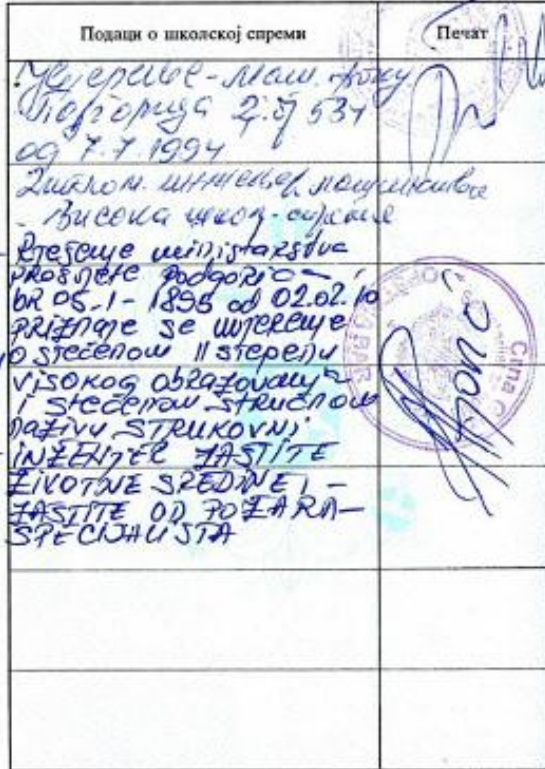 Подаци о школској спреми
Печат
Увјерење - Маш. факу
Подгорица Д.Б 534
од 7.7.1994
Диплом. инжењер машинства
- Висока школ. спрема
Rješenje ministarstva
PROSVJETE Podgorica -
bR 05-1-1895 od 02.02.10
PRIZNAJE SE UVJERENJE
O STEČENOM II STEPENU
VISOKOG OBRAZOVANJA
I STEČENOM STRUČNOM
NAZIVU STRUKOVNI
INŽENJER ZAŠTITE
ŽIVOTNE SREDINE, -
ZAŠTITE OD POŽARA -
SPECIJALISTA
Crna G